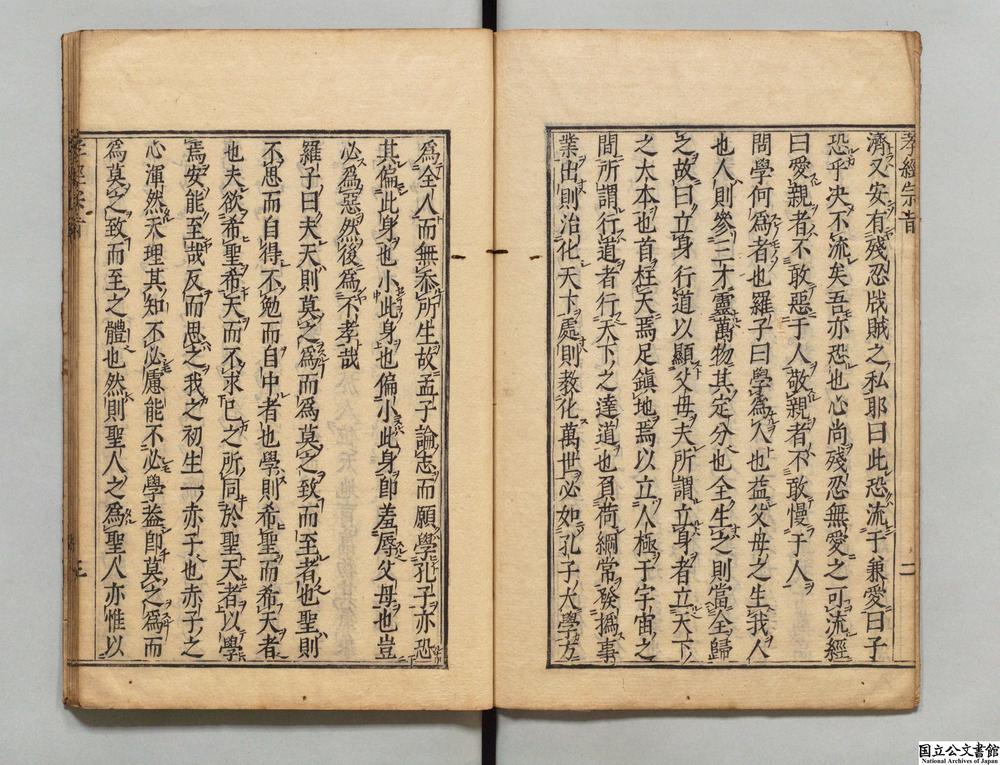 孝經宗旨
濟又安有殘忍戕賊之私耶曰此恐流于兼愛曰子
恐乎决不流矣吾亦恐也心尚殘忍無愛之可流經
曰愛親者不敢惡于人敬親者不敢慢于人
問學何爲者也羅子曰學爲人也益父母之生我人
也人則參三才靈萬物其定分也全生之則當全歸
之故曰立身行道以顯父母夫所謂立身者立天下
之大本也首柱天焉足鎮地焉以立人極于宇宙之
間所謂行道者行天下之達道也負荷綱常發撝事
業出則治化天下處則教化萬世必如孔子大學方
二
爲全人而無忝所生故孟子論志而願學孔子亦恐
其偏此身也小此身也偏小此身即羞辱父母也豈
必爲惡然後爲不孝哉
羅子曰夫天則莫之爲而爲莫之致而至者也聖則
不思而自得不勉而自中者也學則希聖而希天者
也夫欲希聖希天而不求已之所同於聖天者以學
焉安能至哉反而思之我之初生一赤子也赤子之
心渾然天理其知不必慮能不必學益即莫之爲而
爲莫之致而至之體也然則聖人之爲聖人亦惟以
孝經宗旨
三
国立公文書館
National Archives of Japan